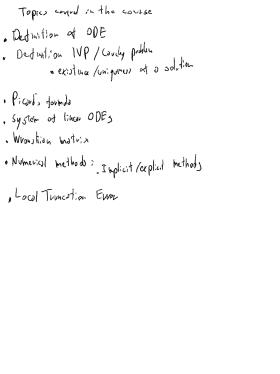 Topics covered in the course
• Definition of ODE
• Definition IVP / Cauchy problem
• existence/uniqueness of a solution
• Picard's formula
• System of linear ODEs
• Wronskian matrix
• Numerical methods:
• Implicit/explicit methods
• Local Truncation Error